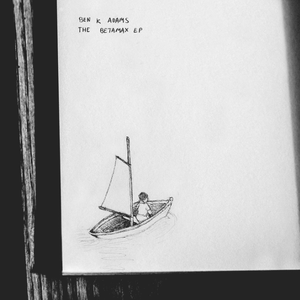 BEN K ADAMS
THE BETAMAX EP